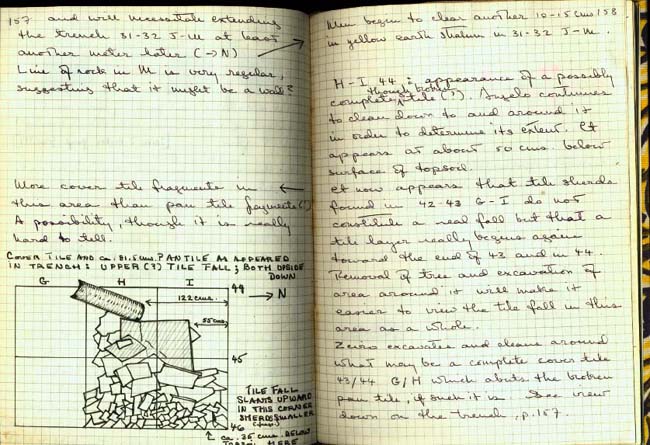 157 and will necessitate extending
the trench 31-32 J-M at least
another meter later (→ N)
Line of rock in M is very regular,
suggesting that it might be a wall?
More cover tile fragments in
this area than pan tile fragments (?)
A possibility, though it is really
hard to tell.
COVER TILE AND ca. 81.5 cms. PAN TILE AS APPEARED
IN TRENCH: UPPER (?) TILE FALL; BOTH UPSIDE
DOWN
G H I
44 → N
122 cms.
55 cms.
45
TILE FALL
SLANTS UPWARD
IN THIS CORNER
SHERDS SMALLER
46
ca. 35 cms. BELOW
TOPSOIL HERE
Men begin to clear another 10-15 cms 158
in yellow earth in 31-32 J-M.
H-I 44: appearance of a possibly
complete, though broken, tile (!). Angelo continues
to clean down to and around it
in order to determine its extent. It
appears at about 50 cms. below
surface of topsoil.
It now appears that tile sherds
found in 42-43 G-I do not
constitute a real fall but that a
tile layer really begins again
toward the end of 43 and in 44.
Removal of tree and excavation of
area around it will make it
easier to view the tile fall in this
area as a whole.
excavates and cleans around
what may be a complete cover tile
43/44 G/H which abuts the broken
pan tile, if such it is. See view
down on the trench, p. 157.